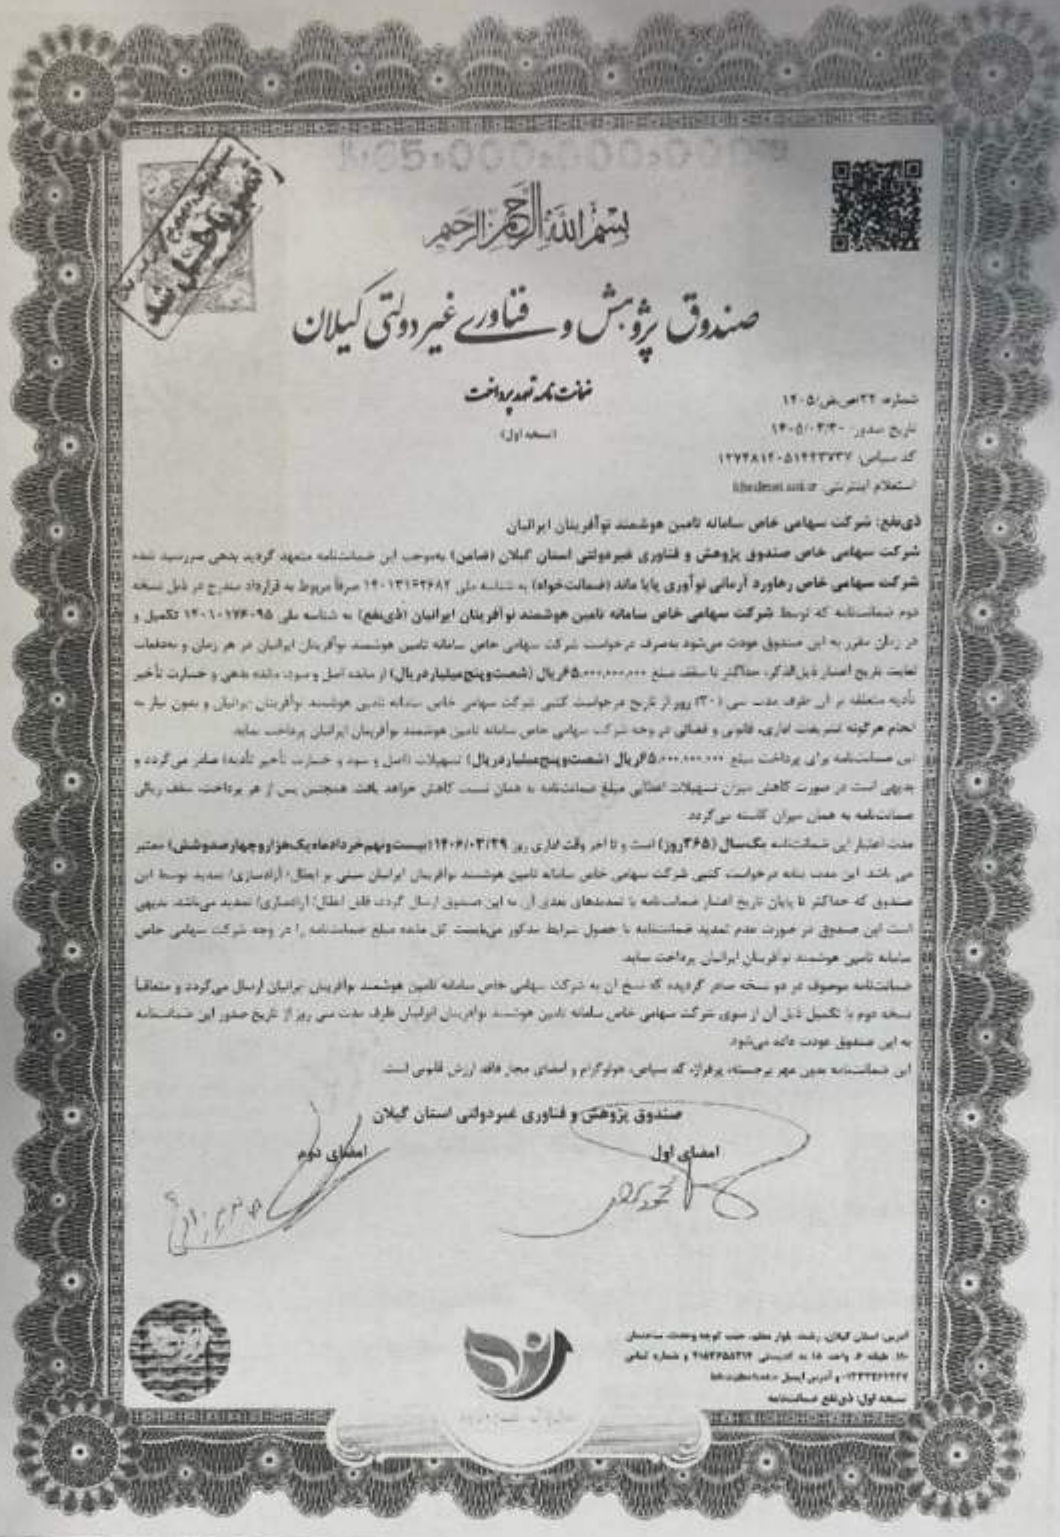 65,000,000,000
بسم الله الرحمن الرحیم
صندوق پژوهش و فناوری غیر دولتی گیلان
ضمانت نامه تعهد پرداخت
(نسخه اول)
شماره:
تاریخ صدور:
کد سپاص:
استعلام اینترنتی:
ذی‌نفع: شرکت سهامی خاص سامانه تامین هوشمند نوآفرینان ایرانیان
شرکت سهامی خاص صندوق پژوهش و فناوری غیردولتی استان گیلان (ضامن) به‌موجب این ضمانت‌نامه متعهد گردید بدهی سررسید شده
شرکت سهامی خاص رهاورد آرمانی نوآوری پایا ماند (ضمانت‌خواه) به شناسه ملی صرفاً مربوط به قرارداد مندرج در ذیل نسخه
دوم ضمانت‌نامه که توسط شرکت سهامی خاص سامانه تامین هوشمند نوآفرینان ایرانیان (ذی‌نفع) به شناسه ملی تکمیل و
در زمان مقرر به این صندوق عودت می‌شود به‌صرف درخواست شرکت سهامی خاص سامانه تامین هوشمند نوآفرینان ایرانیان در هر زمان و به‌دفعات
تاریخ اعتبار ذیل‌الذکر، حداکثر تا سقف مبلغ ۶۵،۰۰۰،۰۰۰،۰۰۰ ریال (شصت‌وپنج‌میلیارد‌ریال) از مانده اصل و سود، مانده بدهی و خسارت تأخیر
تأدیه متعلقه بر آن ظرف مدت سی (۳۰) روز از تاریخ درخواست کتبی شرکت سهامی خاص سامانه تامین هوشمند نوآفرینان ایرانیان و بدون نیاز به
انجام هرگونه تشریفات اداری، قانونی و قضائی در وجه شرکت سهامی خاص سامانه تامین هوشمند نوآفرینان ایرانیان پرداخت نماید.
این ضمانت‌نامه برای پرداخت مبلغ ۶۵،۰۰۰،۰۰۰،۰۰۰ ریال (شصت‌وپنج‌میلیارد‌ریال) تسهیلات (اصل و سود و خسارت تأخیر تأدیه) صادر می‌گردد و
بدیهی است در صورت کاهش میزان تسهیلات اعطائی مبلغ ضمانت‌نامه به همان نسبت کاهش خواهد یافت. همچنین پس از هر پرداخت، سقف ریالی
ضمانت‌نامه به همان میزان کاسته می‌گردد.
مدت اعتبار این ضمانت‌نامه یک‌سال (۳۶۵روز) است و تا آخر وقت اداری روز ۱۴۰۶/۰۳/۲۹ (بیست‌ونهم‌خردادماه‌یک‌هزار‌و‌چهارصدوشش) معتبر
می باشد. این مدت بنابه درخواست کتبی شرکت سهامی خاص سامانه تامین هوشمند نوآفرینان ایرانیان مبنی بر ابطال/ آزادسازی/ تمدید توسط این
صندوق که حداکثر تا پایان تاریخ اعتبار ضمانت‌نامه یا تمدیدهای بعدی آن به این صندوق ارسال گردد، قابل ابطال/ آزادسازی/ تمدید می‌باشد. بدیهی
است این صندوق در صورت عدم تمدید ضمانت‌نامه با حصول شرایط مذکور می‌بایست کل مانده مبلغ ضمانت‌نامه را در وجه شرکت سهامی خاص
سامانه تامین هوشمند نوآفرینان ایرانیان پرداخت نماید.
ضمانت‌نامه موصوف در دو نسخه صادر گردیده که نسخ آن به شرکت سهامی خاص سامانه تامین هوشمند نوآفرینان ایرانیان ارسال می‌گردد و متعاقباً
نسخه دوم با تکمیل ذیل آن از سوی شرکت سهامی خاص سامانه تامین هوشمند نوآفرینان ایرانیان ظرف مدت سی روز از تاریخ صدور این ضمانت‌نامه
به این صندوق عودت داده می‌شود.
این ضمانت‌نامه بدون مهر برجسته، پرفراژ، کد سپاص، هولوگرام و امضای مجاز فاقد ارزش قانونی است.
صندوق پژوهش و فناوری غیردولتی استان گیلان
امضای اول
امضای دوم
آدرس: استان گیلان، رشت، بلوار معلم، جنب کوچه وحدت، ساختمان
و شماره تماس
و آدرس ایمیل
نسخه اول: ذی‌نفع ضمانت‌نامه